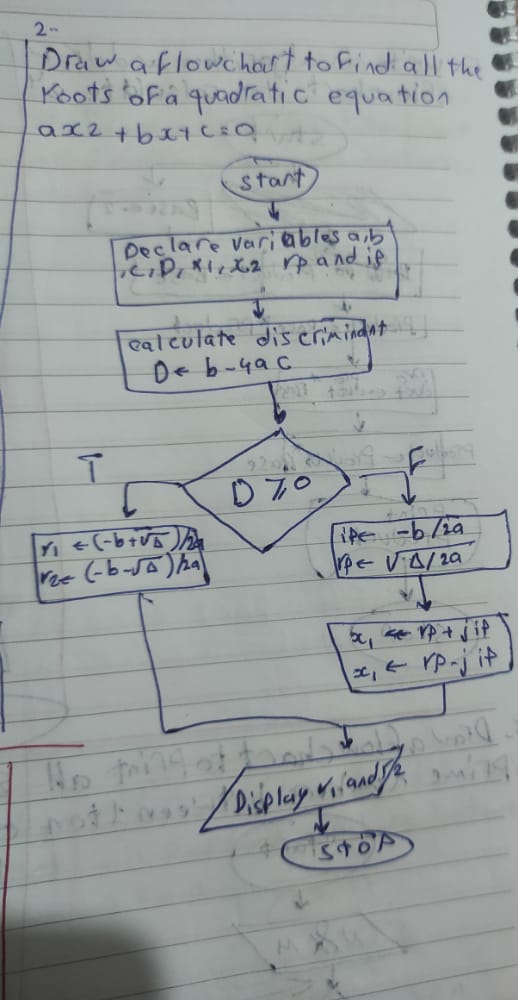 2-
Draw a flowchart to find all the
roots of a quadratic equation
ax2 + bx + c = 0
start
Declare variables a, b
, c, D, x1, x2 rp and ip
calculate discriminant
D ← b - 4ac
T
D ≥ 0
F
r1 ← (-b+√Δ)/2a
r2 ← (-b-√Δ)/2a
ip ← -b/2a
rp ← √-Δ/2a
x1 ← rp + j ip
x1 ← rp - j ip
Display r1 and r2
stop